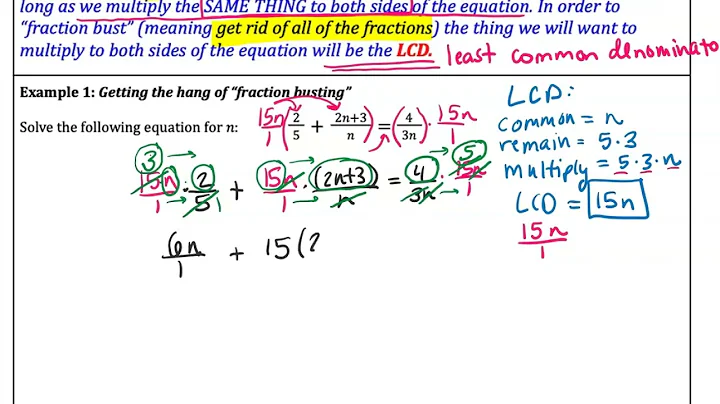 long as we multiply the SAME THING to both sides of the equation. In order to
"fraction bust" (meaning get rid of all of the fractions) the thing we will want to
multiply to both sides of the equation will be the LCD. least common denominato
Example 1: Getting the hang of "fraction busting"
Solve the following equation for n: 15n/1 (2/5 + 2n+3/n) = (4/3n) · 15n/1
3 5
15n/1 · 2/5 1 + 15n/1 · (2n+3)/n = 4/3n · 15n/1
6n/1 + 15(2
LCD:
common = n
remain = 5·3
multiply = 5·3·n
LCD = 15n
15n/1